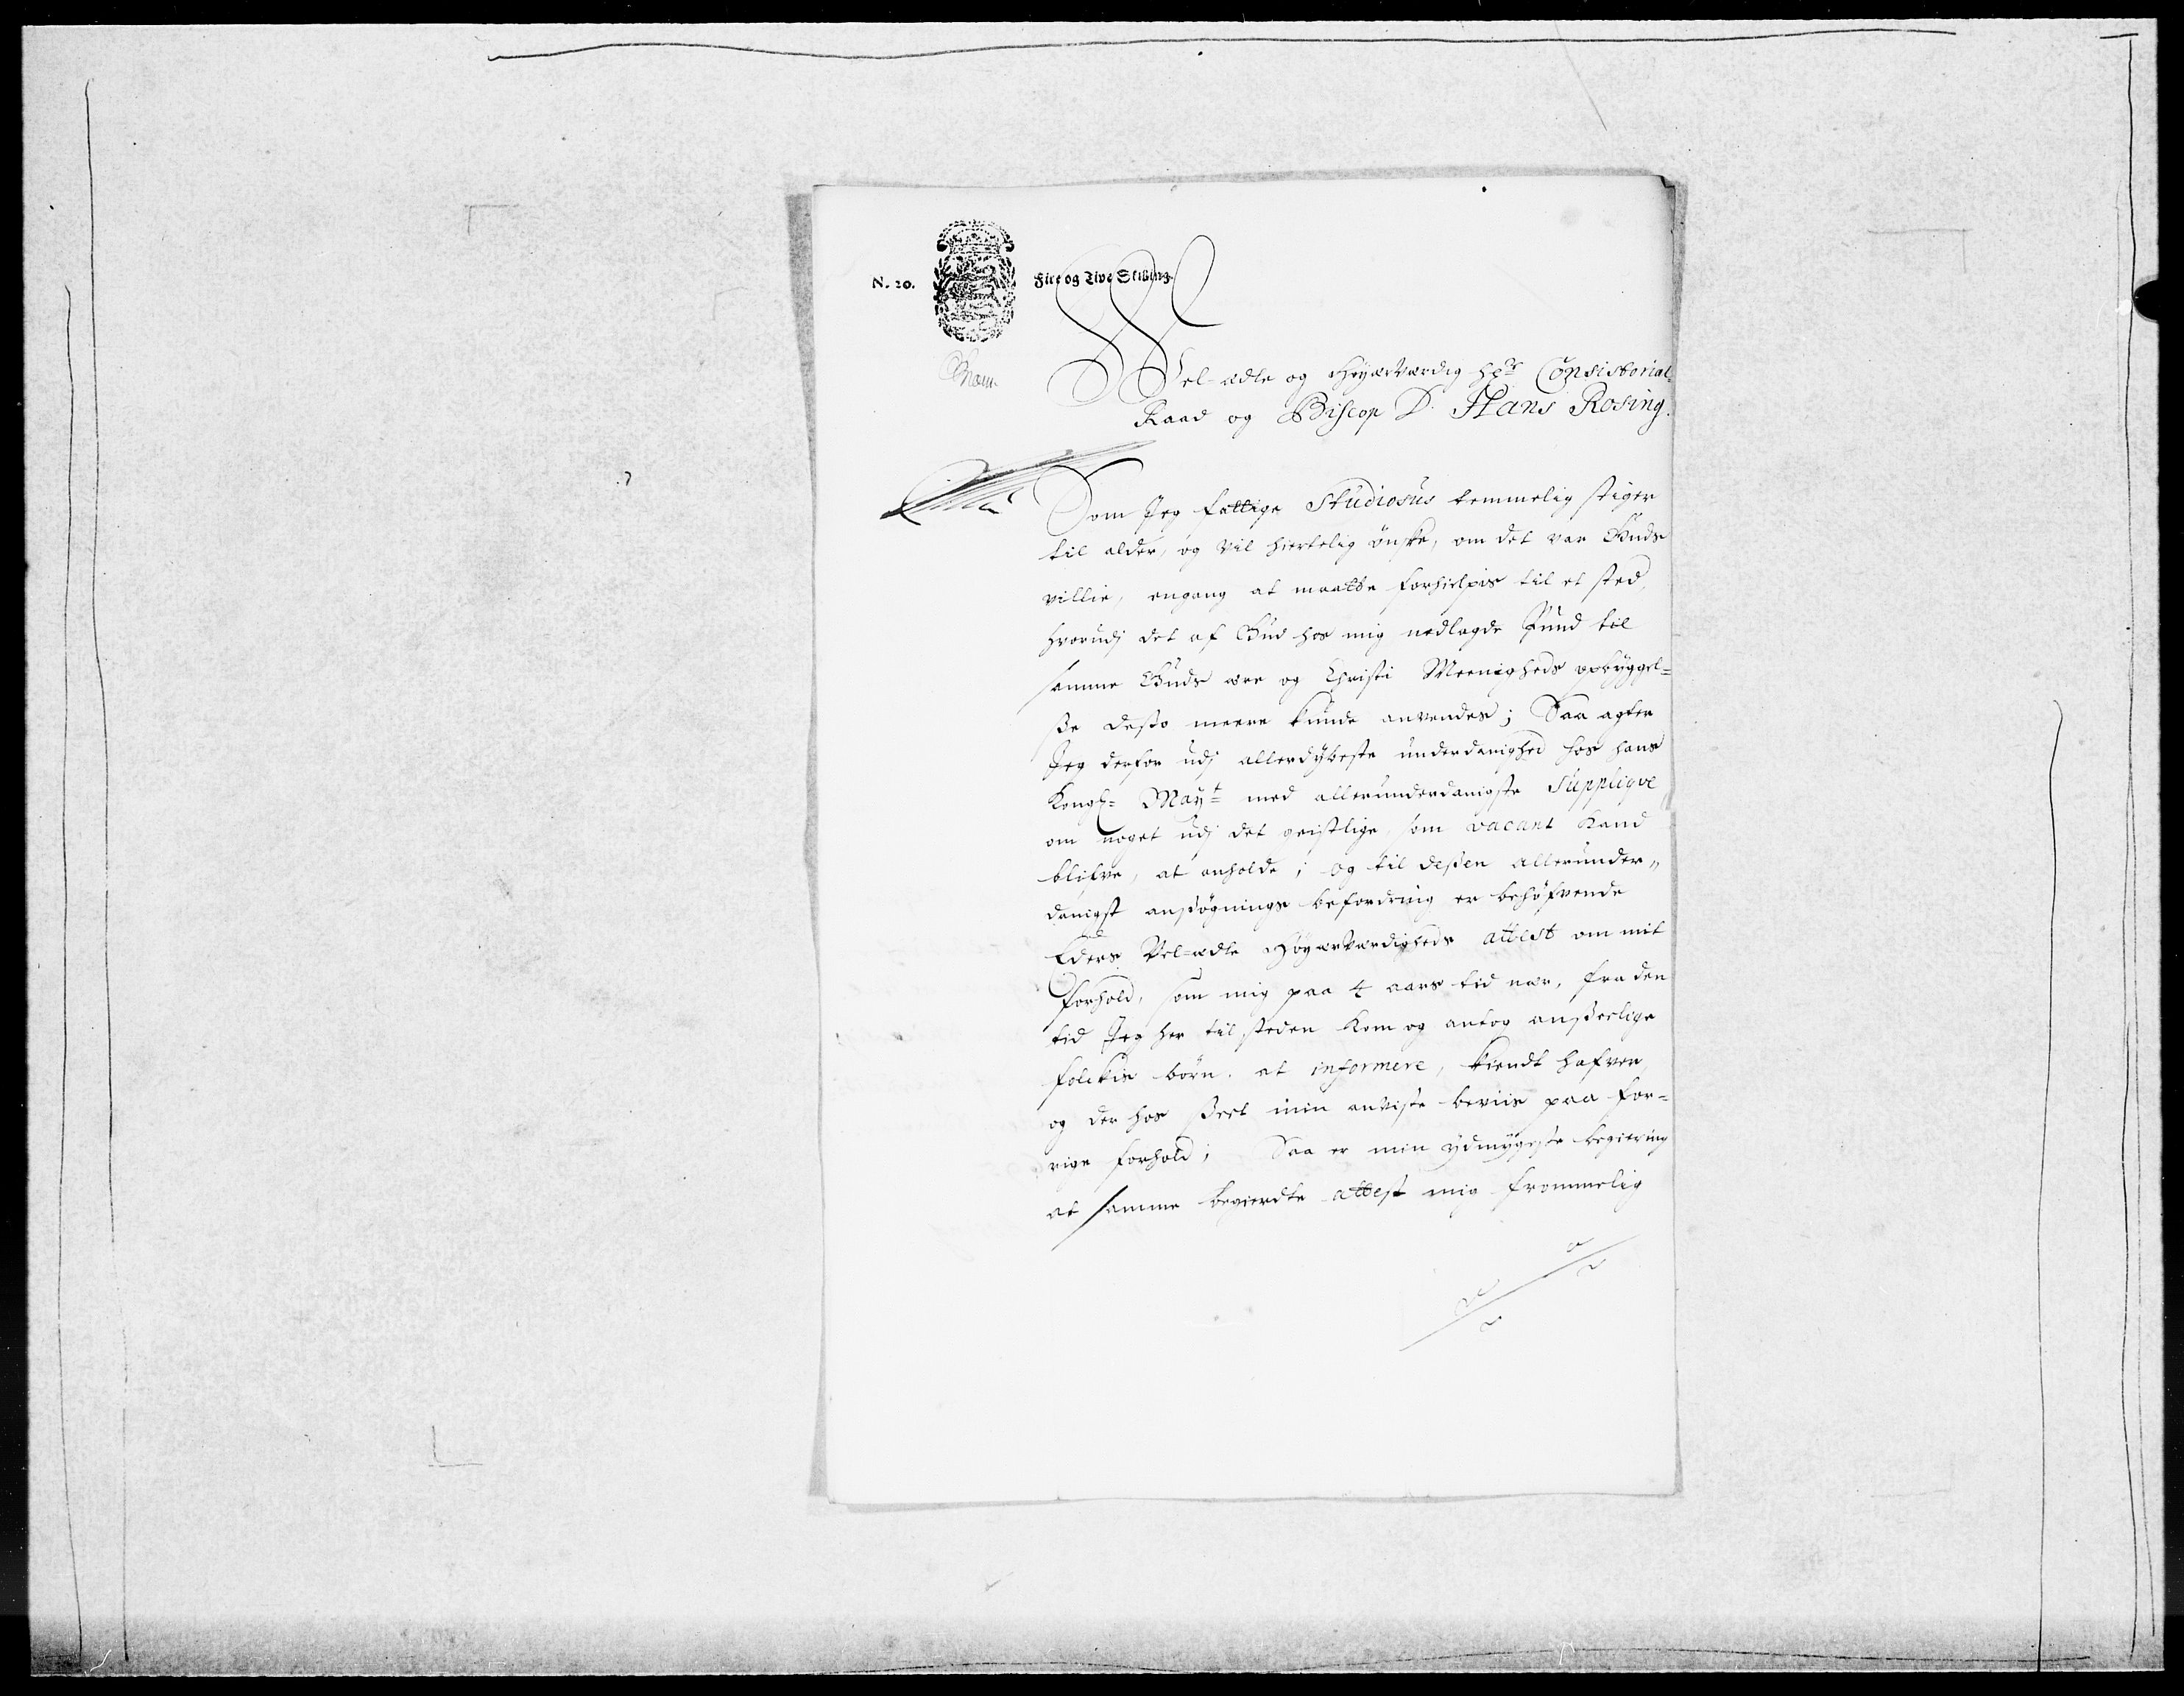 N. 20.
Fire og Tive Skilling.
Vel-ædle og Høyærværdig hr Consistorial-
Raad og Biscop D. Hans Rosing.
Som Jeg fattige Studiosus temmelig stiger
til alder, og vil hiertelig ønske, om det var Guds
villie, engang at maatte forhielpis til et sted,
hvorudj det af Gud hos mig nedlagde Pund til
samme Guds ære og Christi Meenigheds opbyggel=
ße desto meere kunde anvendes; Saa agter
Jeg derfor udj allerdybeste underdanighed hos hans
Kongl= Mayt= med allerunderdanigste Supplique,
om noget udj det geistlige, som vacant kand
blifve, at anholde; og til deßen allerunder„
danigst ansøgnings befordring er behøfvende
Eders Vel-ædle Høyærværdigheds attest om mit
forhold, som mig paa 4 aars tid nær, fra den
tid Jeg her til steden kom og antog anseelige
folckis børn at informere, kiendt hafver,
og der hos seet min anviste beviis paa for=
rige forhold; Saa er min ydmygeste begiering
at samme begierdte attest mig frommelig